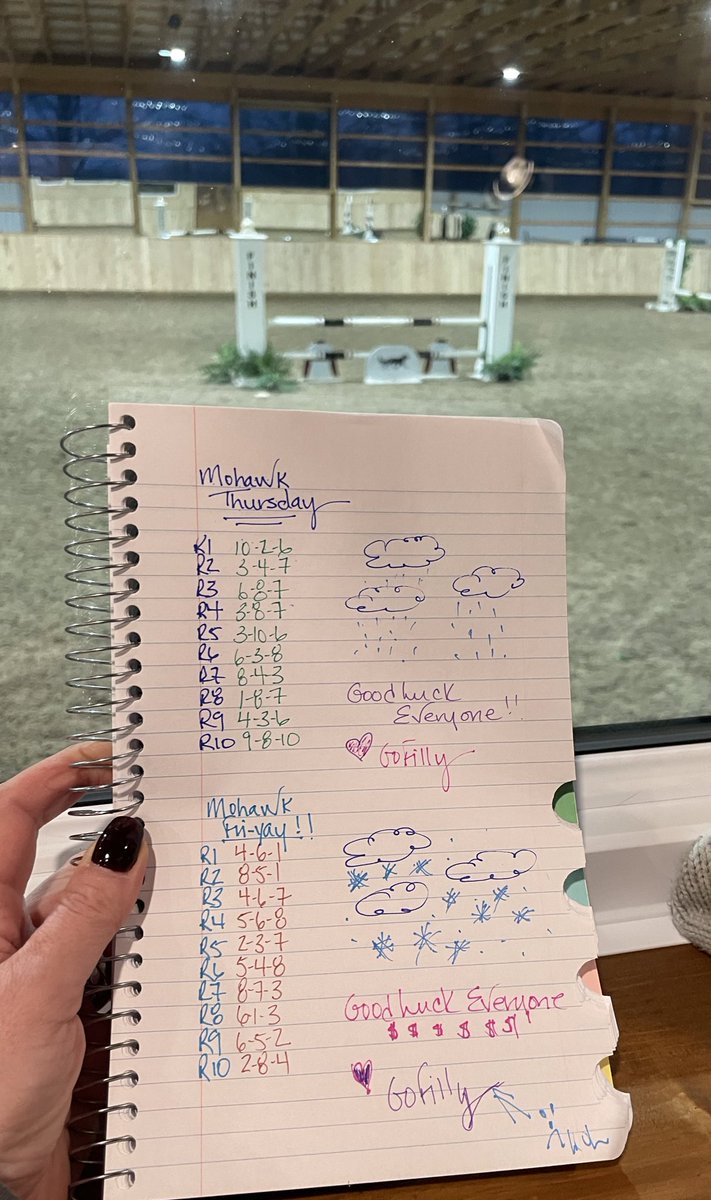 FINISH
FINISH
Mohawk
Thursday
R1 10-2-6
R2 3-4-7
R3 6-8-7
R4 3-8-7
R5 3-10-6
R6 6-3-8
R7 8-4-3
R8 1-8-7
R9 4-3-6
R10 9-8-10
Good Luck
Everyone!!
GoFilly
Mohawk
Fri-yay!!
R1 4-6-1
R2 8-5-1
R3 4-6-7
R4 5-6-8
R5 2-3-7
R6 5-4-8
R7 8-7-3
R8 6-1-3
R9 6-5-2
R10 2-8-4
Good Luck Everyone
$ $ $ $ $ $!
GoFilly